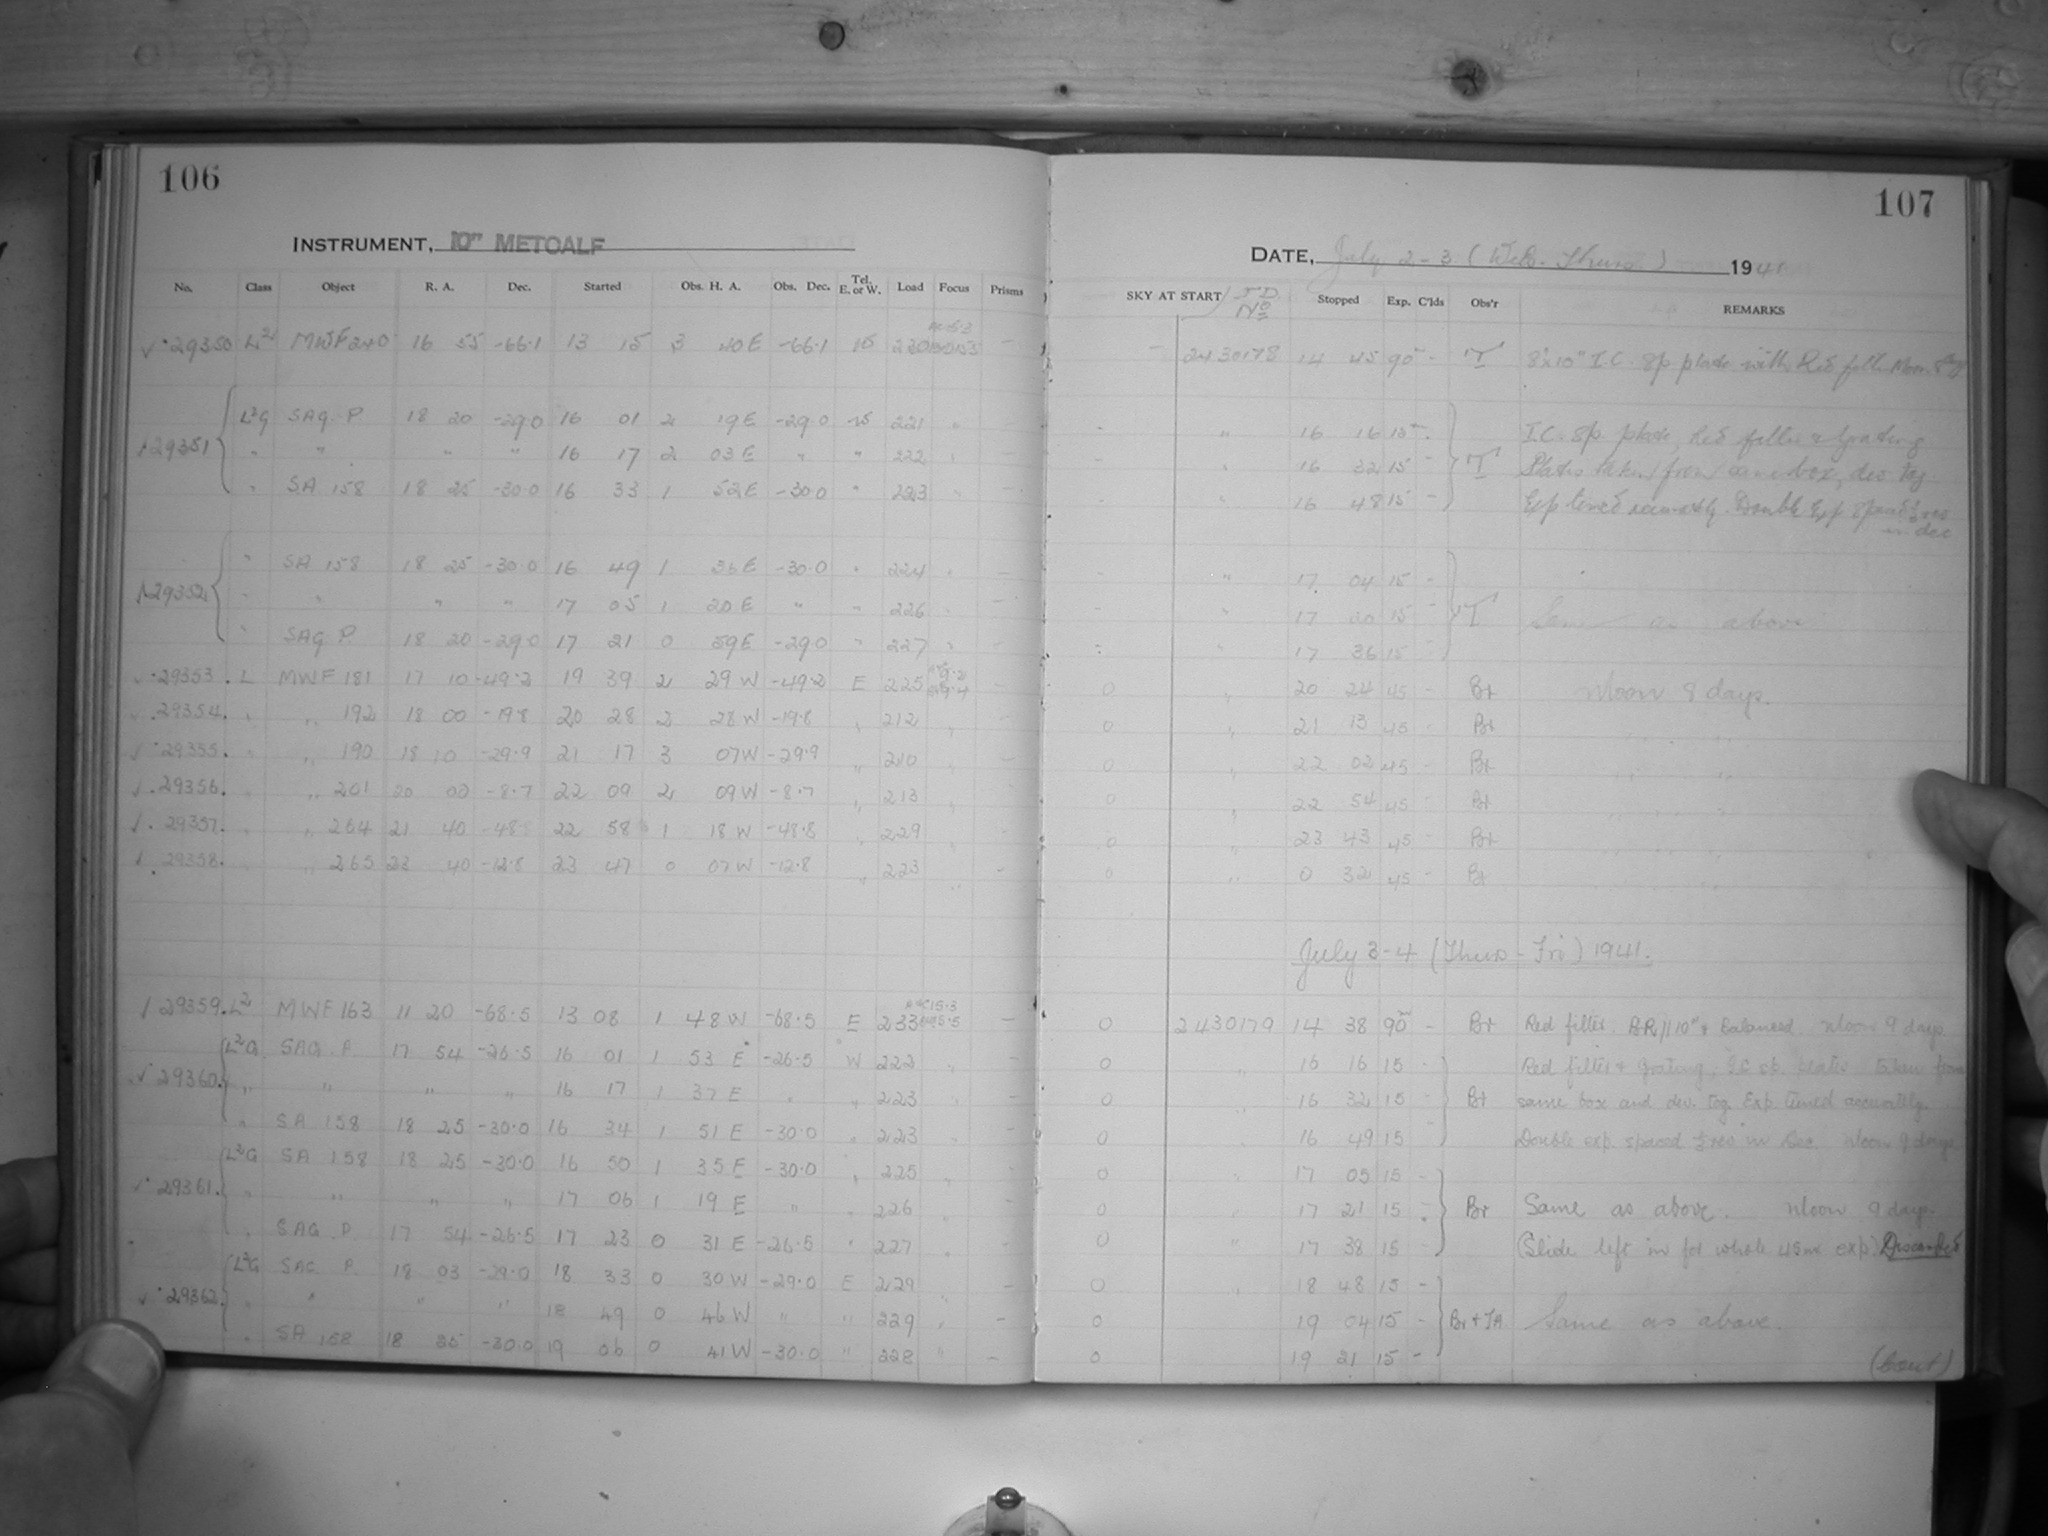 106
INSTRUMENT, 10" METCALF
No. Class Object R. A. Dec. Started Obs. H. A. Obs. Dec. Tel. E. or W. Load Focus Prisms
29350 L2 MWF 240 16 55 -66.1 13 15 3 40 E -66.1 230 –
29351 L2G SAG. P. 18 20 -29.0 16 01 2 19 E -29.0 221
" " " " 16 17 2 03 E " " 222
" SA 158 18 25 -30.0 16 33 1 52 E -30.0 " 223
29352 " SA 158 18 25 -30.0 16 49 1 36 E -30.0 " 224 –
" " " " 17 05 1 20 E " " 226 –
" SAG P. 18 20 -29.0 17 21 0 59 E -29.0 " 227 –
29353. L MWF 181 17 10 -49.2 19 39 2 29 W -49.2 E 225 –
29354. " " 192 18 00 -19.8 20 28 2 28 W -19.8 " 212 –
29355. " " 190 18 10 -29.9 21 17 3 07 W -29.9 " 210 –
29356. " " 201 20 00 -8.7 22 09 2 09 W -8.7 " 213 –
29357. " " 264 21 40 -48.8 22 58 1 18 W -48.8 " 229 –
29358. " " 265 22 40 -12.8 23 47 0 07 W -12.8 " 223 –
29359. L2 MWF 163 11 20 -68.5 13 08 1 48 W -68.5 E 233 –
29360. L2G SAG. P. 17 54 -26.5 16 01 1 53 E -26.5 W 222
" " " " 16 17 1 37 E " " 223 –
" SA 158 18 25 -30.0 16 34 1 51 E -30.0 " 223 –
29361. L2G SA 158 18 25 -30.0 16 50 1 35 E -30.0 " 225 –
" " " " 17 06 1 19 E " " 226 –
" SAG. P. 17 54 -26.5 17 23 0 31 E -26.5 " 227 –
29362. L2G SAG P. 18 03 -29.0 18 33 0 30 W -29.0 E 229 –
" " " " 18 49 0 46 W " " 229 –
" SA 158 18 25 -30.0 19 06 0 41 W -30.0 " 228 " –
107
DATE, July 2-3 (Wed.-Thurs.) 1941
SKY AT START J.D. No Stopped Exp. C'lds Obs'r REMARKS
– 2430178 14 45 90 – T 8x10" I.C. sp plate with Red filter. Moon
– " 16 16 15 – I.C. sp. plate, Red filter & Grating
– " 16 32 15 – T Plates taken from same box, dev. tog
– " 16 48 15 – Exp timed accurately. Double Exp spaced in dec
– " 17 04 15 –
– " 17 20 15 – T Same as above
– " 17 36 15 –
0 " 20 24 45 – Br Moon 8 days.
0 " 21 13 45 – Br " "
0 " 22 02 45 – Br " "
0 " 22 54 45 – Br " "
0 " 23 43 45 – Br " "
0 " 0 32 45 – Br " "
July 3-4 (Thurs-Fri) 1941.
0 2430179 14 38 90 – Br Red filter. 10" & Balanced. Moon 9 days
0 " 16 16 15 – Red filter & Grating, I.C. sp. plates taken from
0 " 16 32 15 – Br same box and dev. tog. Exp. timed accurately.
0 " 16 49 15 Double exp. spaced in Dec. Moon 9 days
0 " 17 05 15 –
0 " 17 21 15 – Br Same as above. Moon 9 days.
0 " 17 38 15 – (Slide left in for whole 45m exp) Discarded
0 " 18 48 15 –
0 19 04 15 – Br + JA Same as above.
0 19 21 15 –
(Cont)